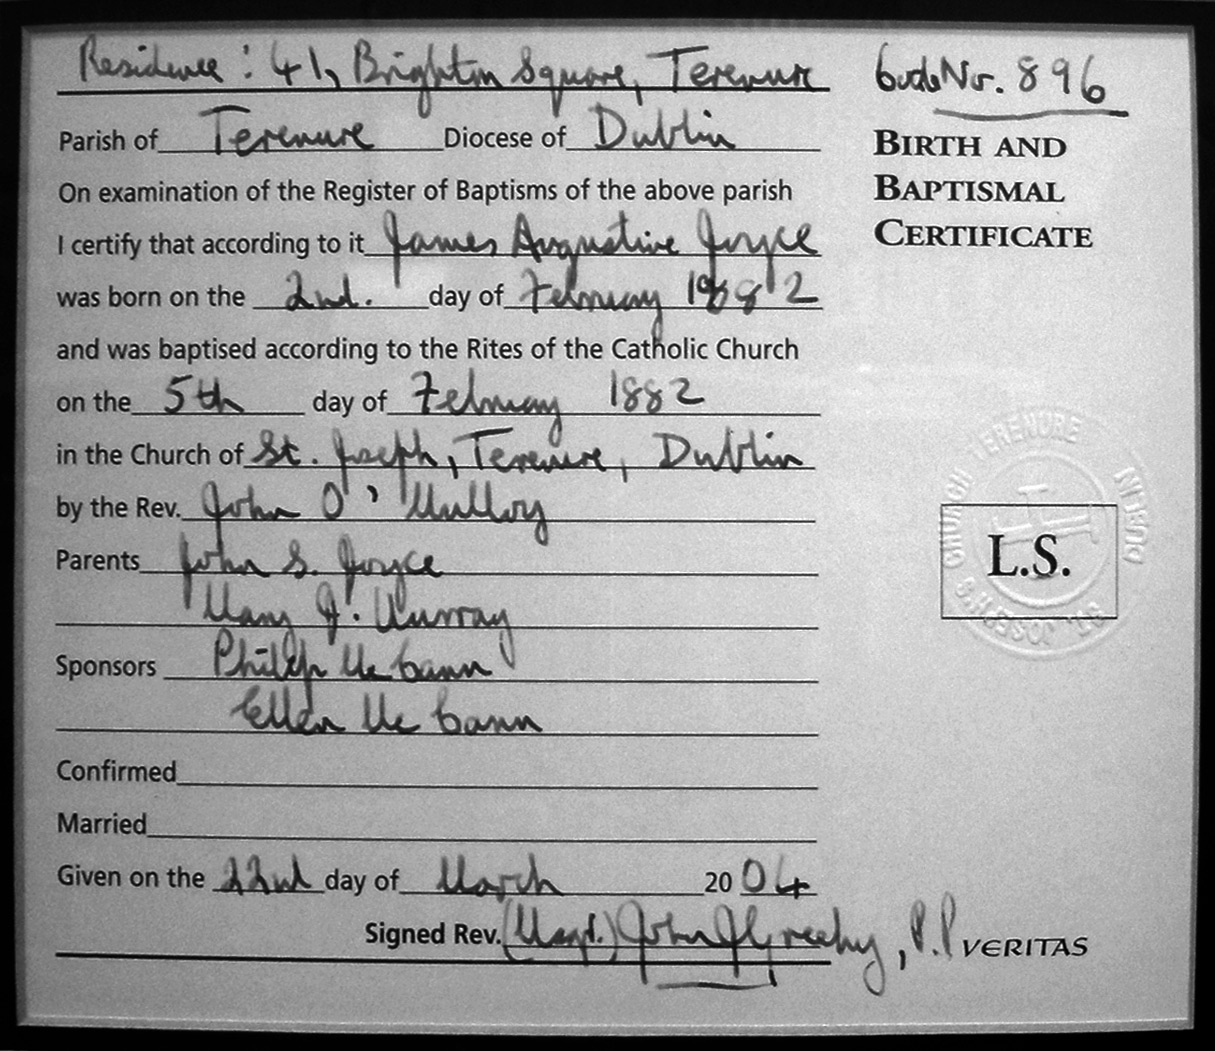 Residence: 41, Brighton Square, Terenure
Code No. 896
BIRTH AND
BAPTISMAL
CERTIFICATE
Parish of Terenure Diocese of Dublin
On examination of the Register of Baptisms of the above parish
I certify that according to it James Augustine Joyce
was born on the 2nd. day of February 1882
and was baptised according to the Rites of the Catholic Church
on the 5th day of February 1882
in the Church of St. Joseph, Terenure, Dublin
by the Rev. John O'Mulloy
Parents John S. Joyce
Mary J. Murray
Sponsors Philip Mc Cann
Ellen Mc Cann
Confirmed
Married
Given on the 22nd day of March 2004
Signed Rev. John J Greehy, P.P
VERITAS
L.S.
ST. JOSEPH'S CHURCH TERENURE DUBLIN